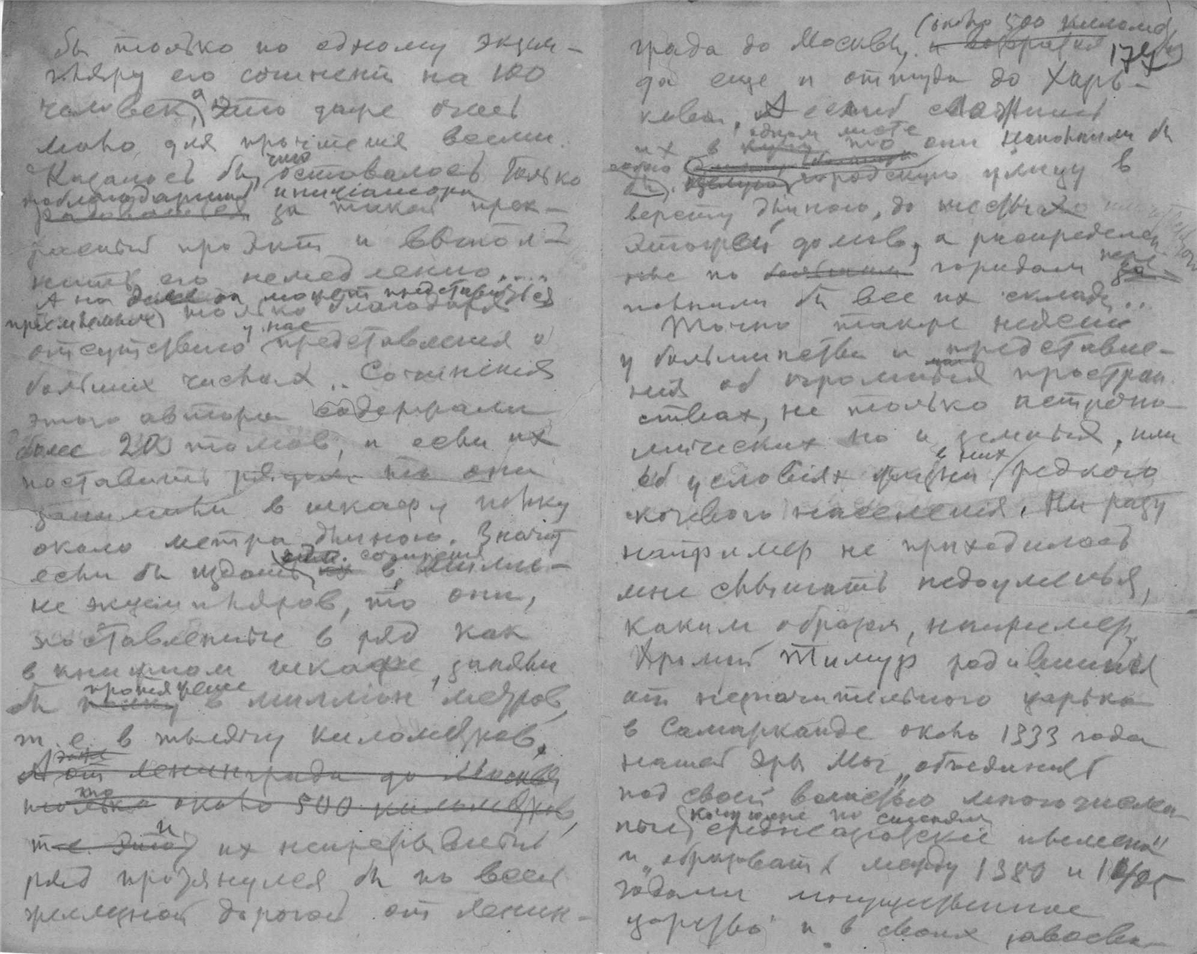 бы только по одному экзем-
пляру его сочинений на 100
человек, а это даже очень
мало для прочтения всеми.
Казалось бы, что оставалось только
поблагодарить инициатора
за такой прек-
расный проэкт и выпол-
нить его немедленно....
А на деле он может представиться
приемлемым только благодаря
отсутствию у нас представления о
больших числах.. Сочинения
этого автора содержали
более 20 томов, и если их
поставить рядом то они
занимали в шкафу полку
около метра длиною. Значит
если бы издать сочинения в миллио-
не экземпляров, то они,
поставленные в ряд как
в книжном шкафе, заняли
бы протяжение в миллион метров,
т. е. в тысячу километров.
А от Ленинграда до Москвы
только около 500 километров,
т е и их непрерывный
ряд протянулся бы по всей
железной дороге от Ленин-
179
(около 500 километров)
града до Москвы,
да еще и оттуда до Харь-
кова. А если б сложить
их в одном месте то они наполнили бы
собою
городскую улицу в
версту длиною, до
этажей домов, а распределен-
ные по городам
полнили бы все их склады...
Точно также неясны
у большинства и представле-
ния об огромных простран-
ствах, не только астроно-
мических но и земных, или
об условиях жизни в них редкого
кочевого населения. Ни разу
например не приходилось
мне слышать недоуменья,
каким образом, например,
Хромой Тимур родившийся
от незначительного царька
в Самарканде около 1333 года
нашей эры мог „объединить
под своей властью многочислен-
ные кочующие по степям
среднеазиатские племена"
и „образовать между 1380 и 1405
годами могущественное
царство" и в своих завоева-